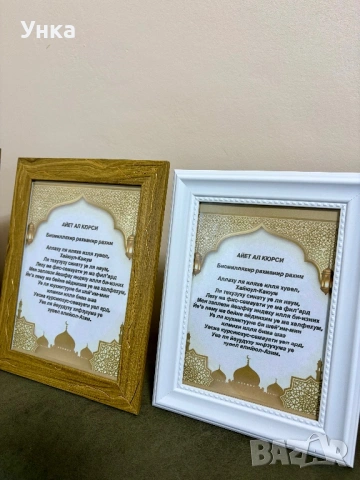 Унка
АЙЕТ АЛ КЮРСИ
Бисмилляхир рахманир рахим
Аллаху ля иляхе илля хувел,
Хаййул-Каюм
Ля техузуху синату уе ля наум,
Леху ма фис-семауати уе ма фил'ард
Мен залязи йашфау индеху илля би-изних
Йа'лу ма бейне ейдихим уе ма халфехум,
Уе ля юхиитууне би шей'им-мин
илмихи илля бима ша
Уесиа курсиюхус-семауати уел ард,
Уле ля йеуудуху хифзухума уе
хувел алийюл-Азим.
АЙЕТ АЛ КЮРСИ
Бисмилляхир рахманир рахим
Аллаху ля иляхе илля хувел,
Хаййул-Каюм
Ля техузуху синату уе ля наум,
Леху ма фис-семауати уе ма фил'ард
Мен залязи йашфау индеху илля би-изних
Йа'лу ма бейне ейдихим уе ма халфехум,
Уе ля юхиитууне би шей'им-мин
илмихи илля бима ша
Уесиа курсиюхус-семауати уел ард,
Уле ля йеуудуху хифзухума уе
хувел алийюл-Азим.
BAZAR